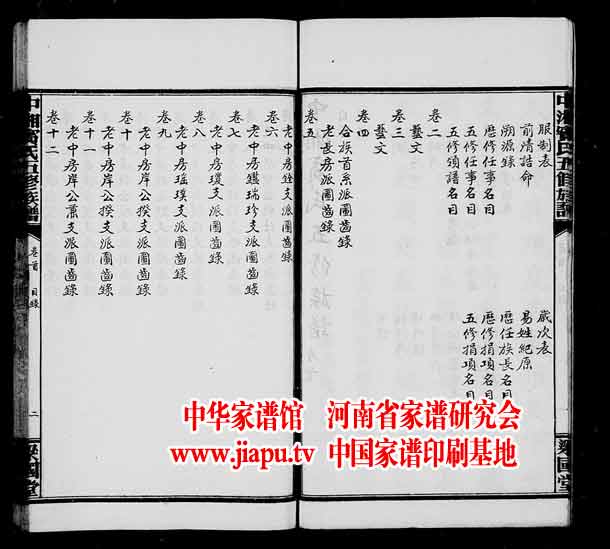 服制表　歲次表
前清誥命　易姓紀原
溯源錄　歷任族長名目
歷修任事名目　歷修捐項名目
五修任事名目　五修捐項名目
五修領譜名目
卷二
藝文
卷三
藝文
卷四
合族首系派圖齒錄
老長房派圖齒錄
卷五
老中房銓支派圖齒錄
卷六
老中房鑑瑞珍支派圖齒錄
卷七
老中房瓊支派圖齒錄
卷八
老中房瑶璞支派圖齒錄
卷九
老中房岸公揆支派圖齒錄
卷十
老中房岸公揆支派圖齒錄
卷十一
老中房岸公蕭支派圖齒錄
卷十二
中湘賓氏五修族譜
卷首　目錄
二
燊國堂
中华家谱馆　河南省家谱研究会
www.jiapu.tv 中国家谱印刷基地